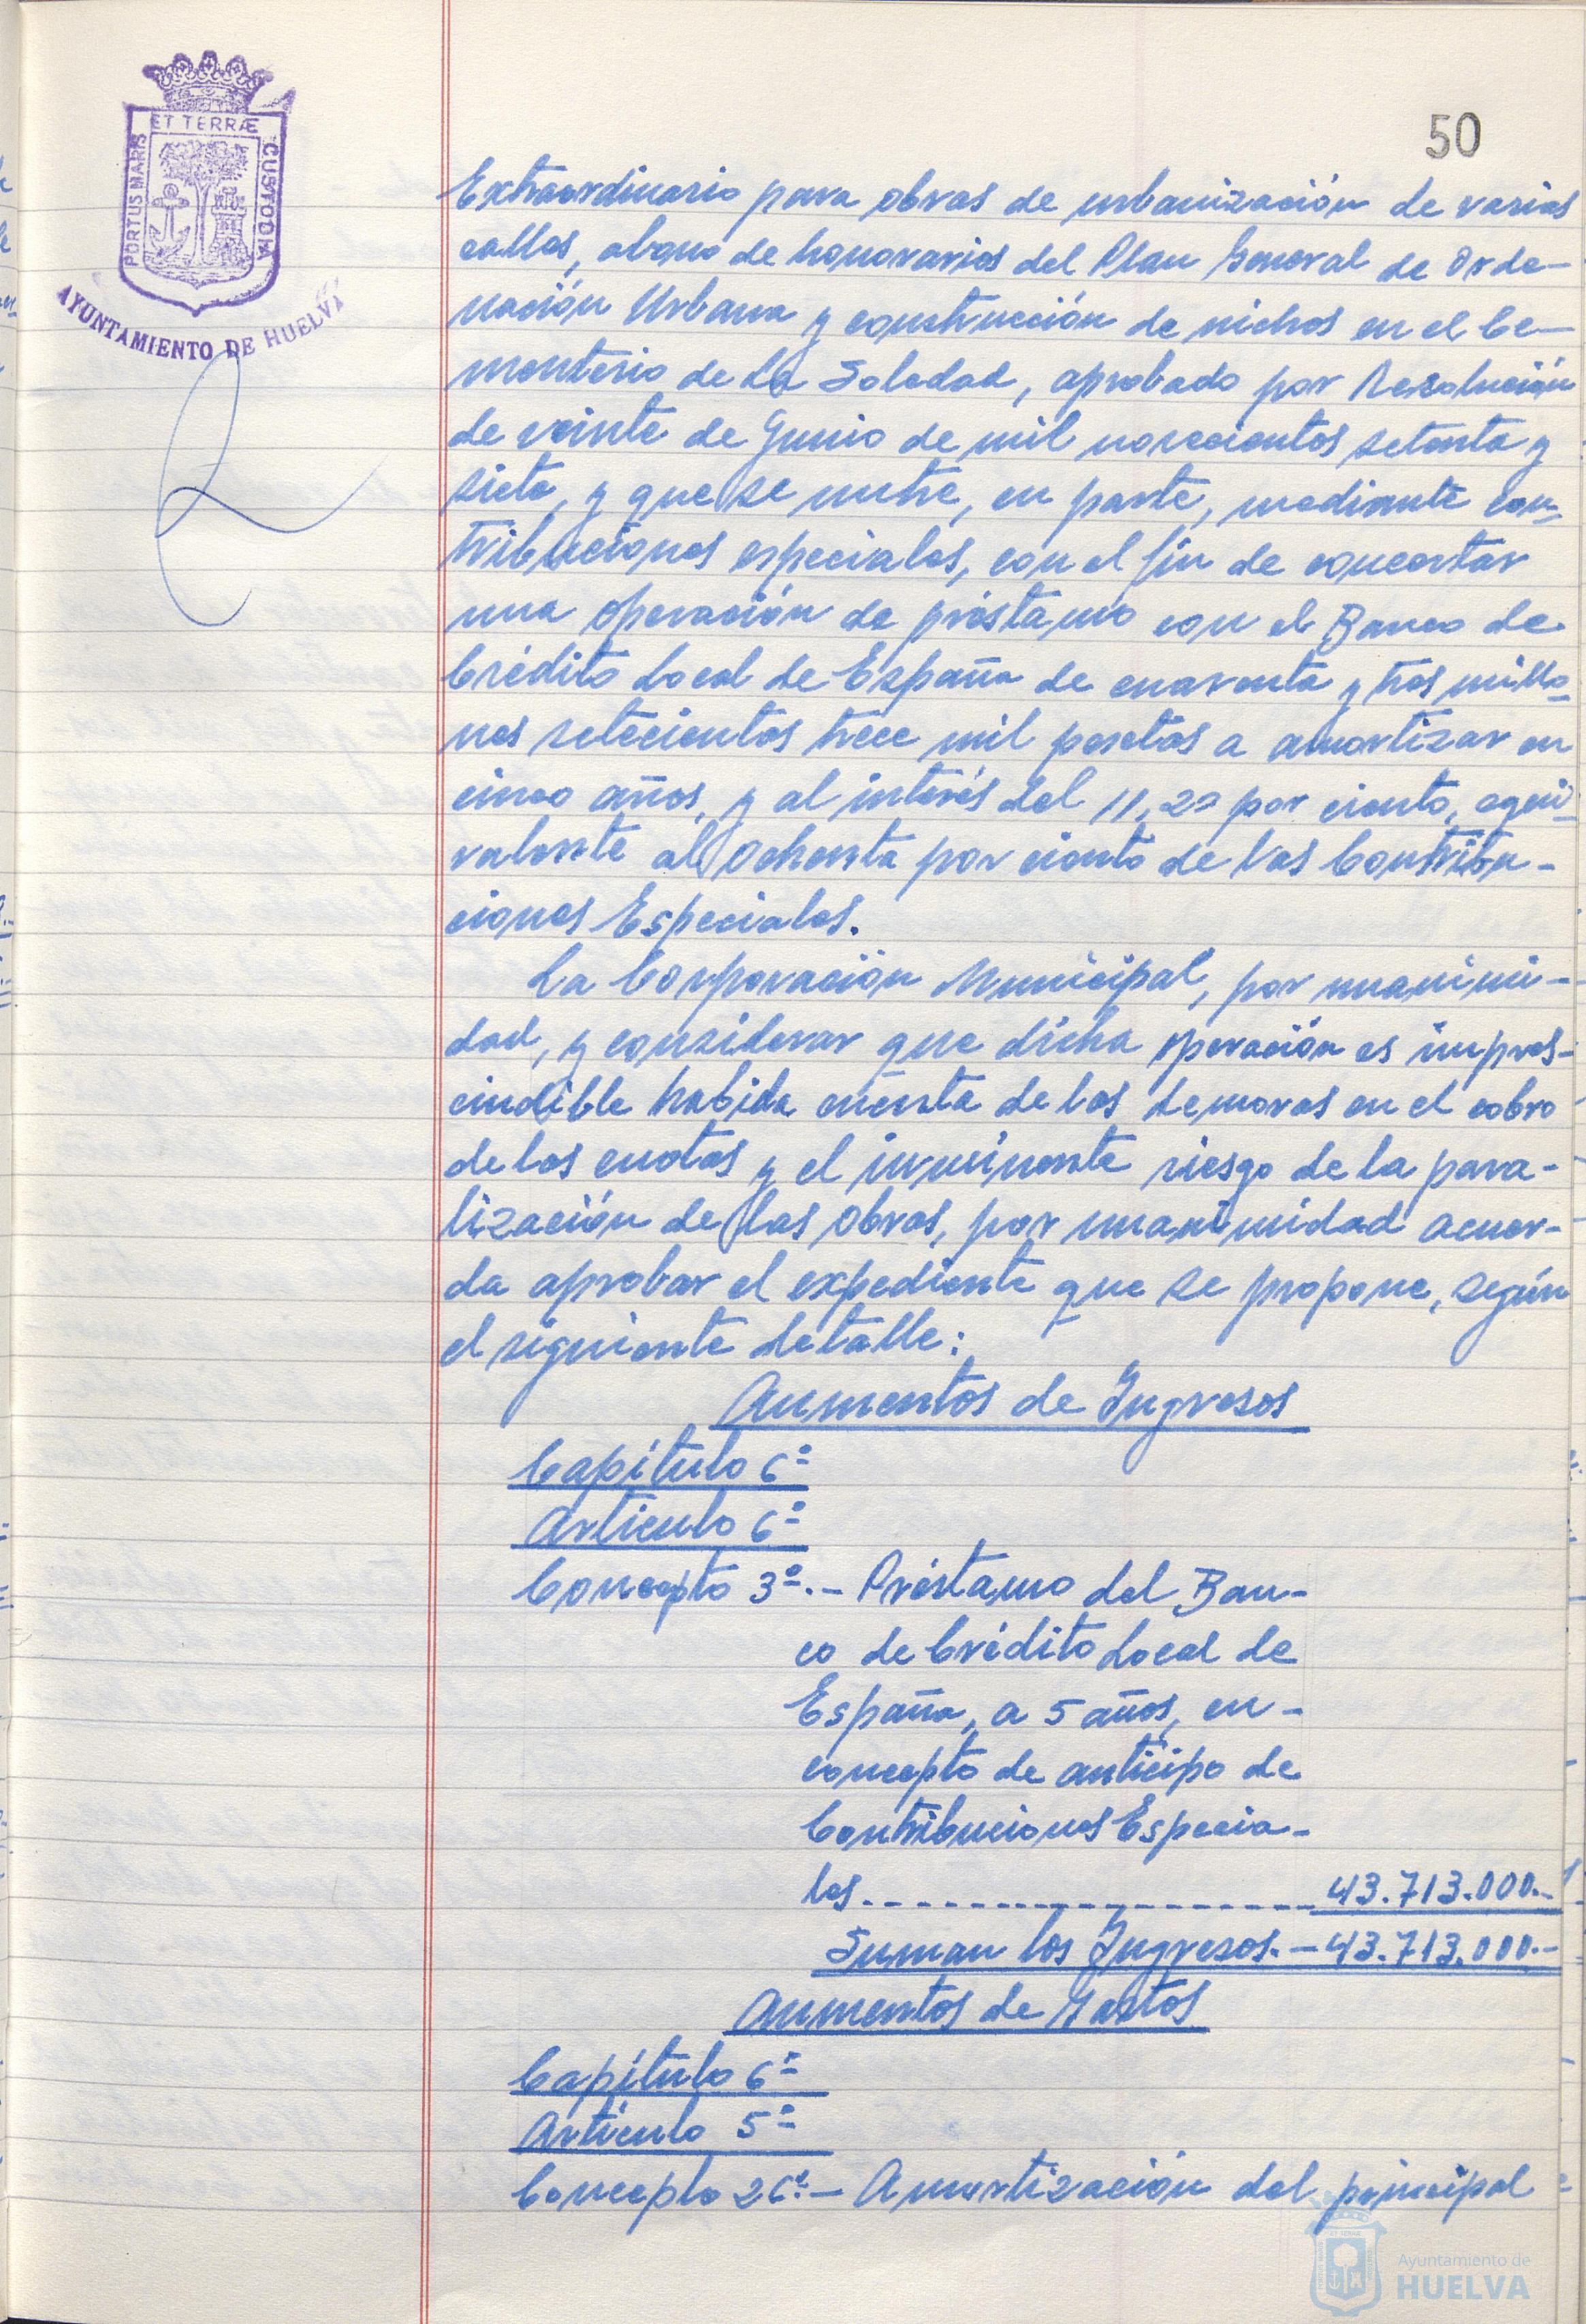 50
ET TERRÆ
PORTUS MARIS
CUSTODIA
AYUNTAMIENTO DE HUELVA
Extraordinario para obras de urbanización de varias
calles, abono de honorarios del Plan General de Orde-
nación Urbana y construcción de nichos en el Ce-
menterio de La Soledad, aprobado por Resolución
de veinte de Junio de mil novecientos setenta y
siete, y que se nutre, en parte, mediante con-
tribuciones especiales, con el fin de concertar
una operación de préstamo con el Banco de
Crédito Local de España de cuarenta y tres millo-
nes setecientas trece mil pesetas a amortizar en
cinco años, y al interés del 11,20 por ciento, equi-
valente al ochenta por ciento de las Contribu-
ciones Especiales.
La Corporación Municipal, por unanimi-
dad, y considerar que dicha operación es impres-
cindible habida cuenta de las demoras en el cobro
de las cuotas y el inminente riesgo de la para-
lización de las obras, por unanimidad acuer-
da aprobar el expediente que se propone, según
el siguiente detalle:
Aumentos de Ingresos
Capítulo 6º
Artículo 6º
Concepto 3º.- Préstamo del Ban-
co de Crédito Local de
España, a 5 años, en-
concepto de anticipo de
Contribuciones Especia-
les.------------------ 43.713.000.-
Suman los Ingresos.- 43.713.000.-
Aumentos de Gastos
Capítulo 6º
Artículo 5º
Concepto 26º.- Amortización del principal
Ayuntamiento de
HUELVA